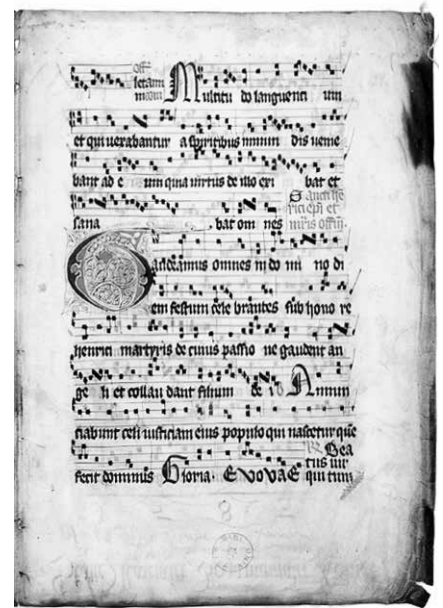 Off
letamini
Multitu do languenti um
et qui uexabantur a spiritibus inmun dis uenie
bant ad e um quia uirtus de illo exi bat et
sana bat om nes
Sancti
epi et
mris offm.
Gaudeamus omnes in do mi no di
em festum cele brantes sub hono re
henrici martyris de cuius passio ne gaudent an
ge li et collau dant filium de i Annun
ciabunt celi iusticiam eius populo qui nascetur que
fecit dominus Gloria. EVOVAE
Bea
tus uir
qui tim